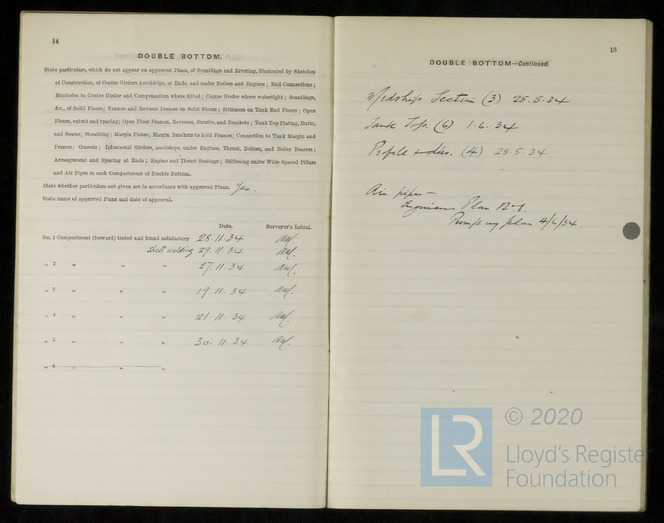 14
DOUBLE BOTTOM.
State particulars, which do not appear on approved Plans, of Scantlings and Riveting, illustrated by Sketches
of Construction, of Centre Girders Amidships, at Ends, and under Boilers and Engines; End Connections;
Manholes in Centre Girder and Compensation where fitted; Centre Girder where watertight; Scantlings,
&c., of Solid Floors; Frames and Reverse Frames on Solid Floors; Stiffeners on Tank End Floors; Open
Floors, extent and spacing; Open Floor Frames, Reverses, Struts, and Brackets; Tank Top Plating, Butts,
and Seams; Sheathing; Margin Plates; Margin Brackets to hold Frames; Connection to Tank Margin and
Frames; Gussets; Intercostal Girders, amidships, under Engines, Thrust, Boilers, and Boiler Bearers;
Arrangement and Spacing at Ends; Engine and Thrust Seatings; Stiffening under Wide Spaced Pillars
and Air Pipes to each Compartment of Double Bottom.
State whether particulars not given are in accordance with approved Plans. Yes.
State name of approved Plans and date of approval.
Date. Surveyor's Initial.
No. 1 Compartment (forward) tested and found satisfactory 28.11.34
Shell welding 29.11.34
„ 2 „ „ „ 27.11.34
„ 3 „ „ „ 19.11.34
„ 4 „ „ „ 21.11.34
„ 5 „ „ „ 30.11.34
„ 6 „ „ „
DOUBLE BOTTOM—Continued.
Midships Section (3) 25.5.34
Tank Top. (6) 1.6.34
Profile & dks. (4) 28.5.34
Air pipes —
Plan
Pumping plan 4/6/34.
LR
© 2020
Lloyd's Register
Foundation